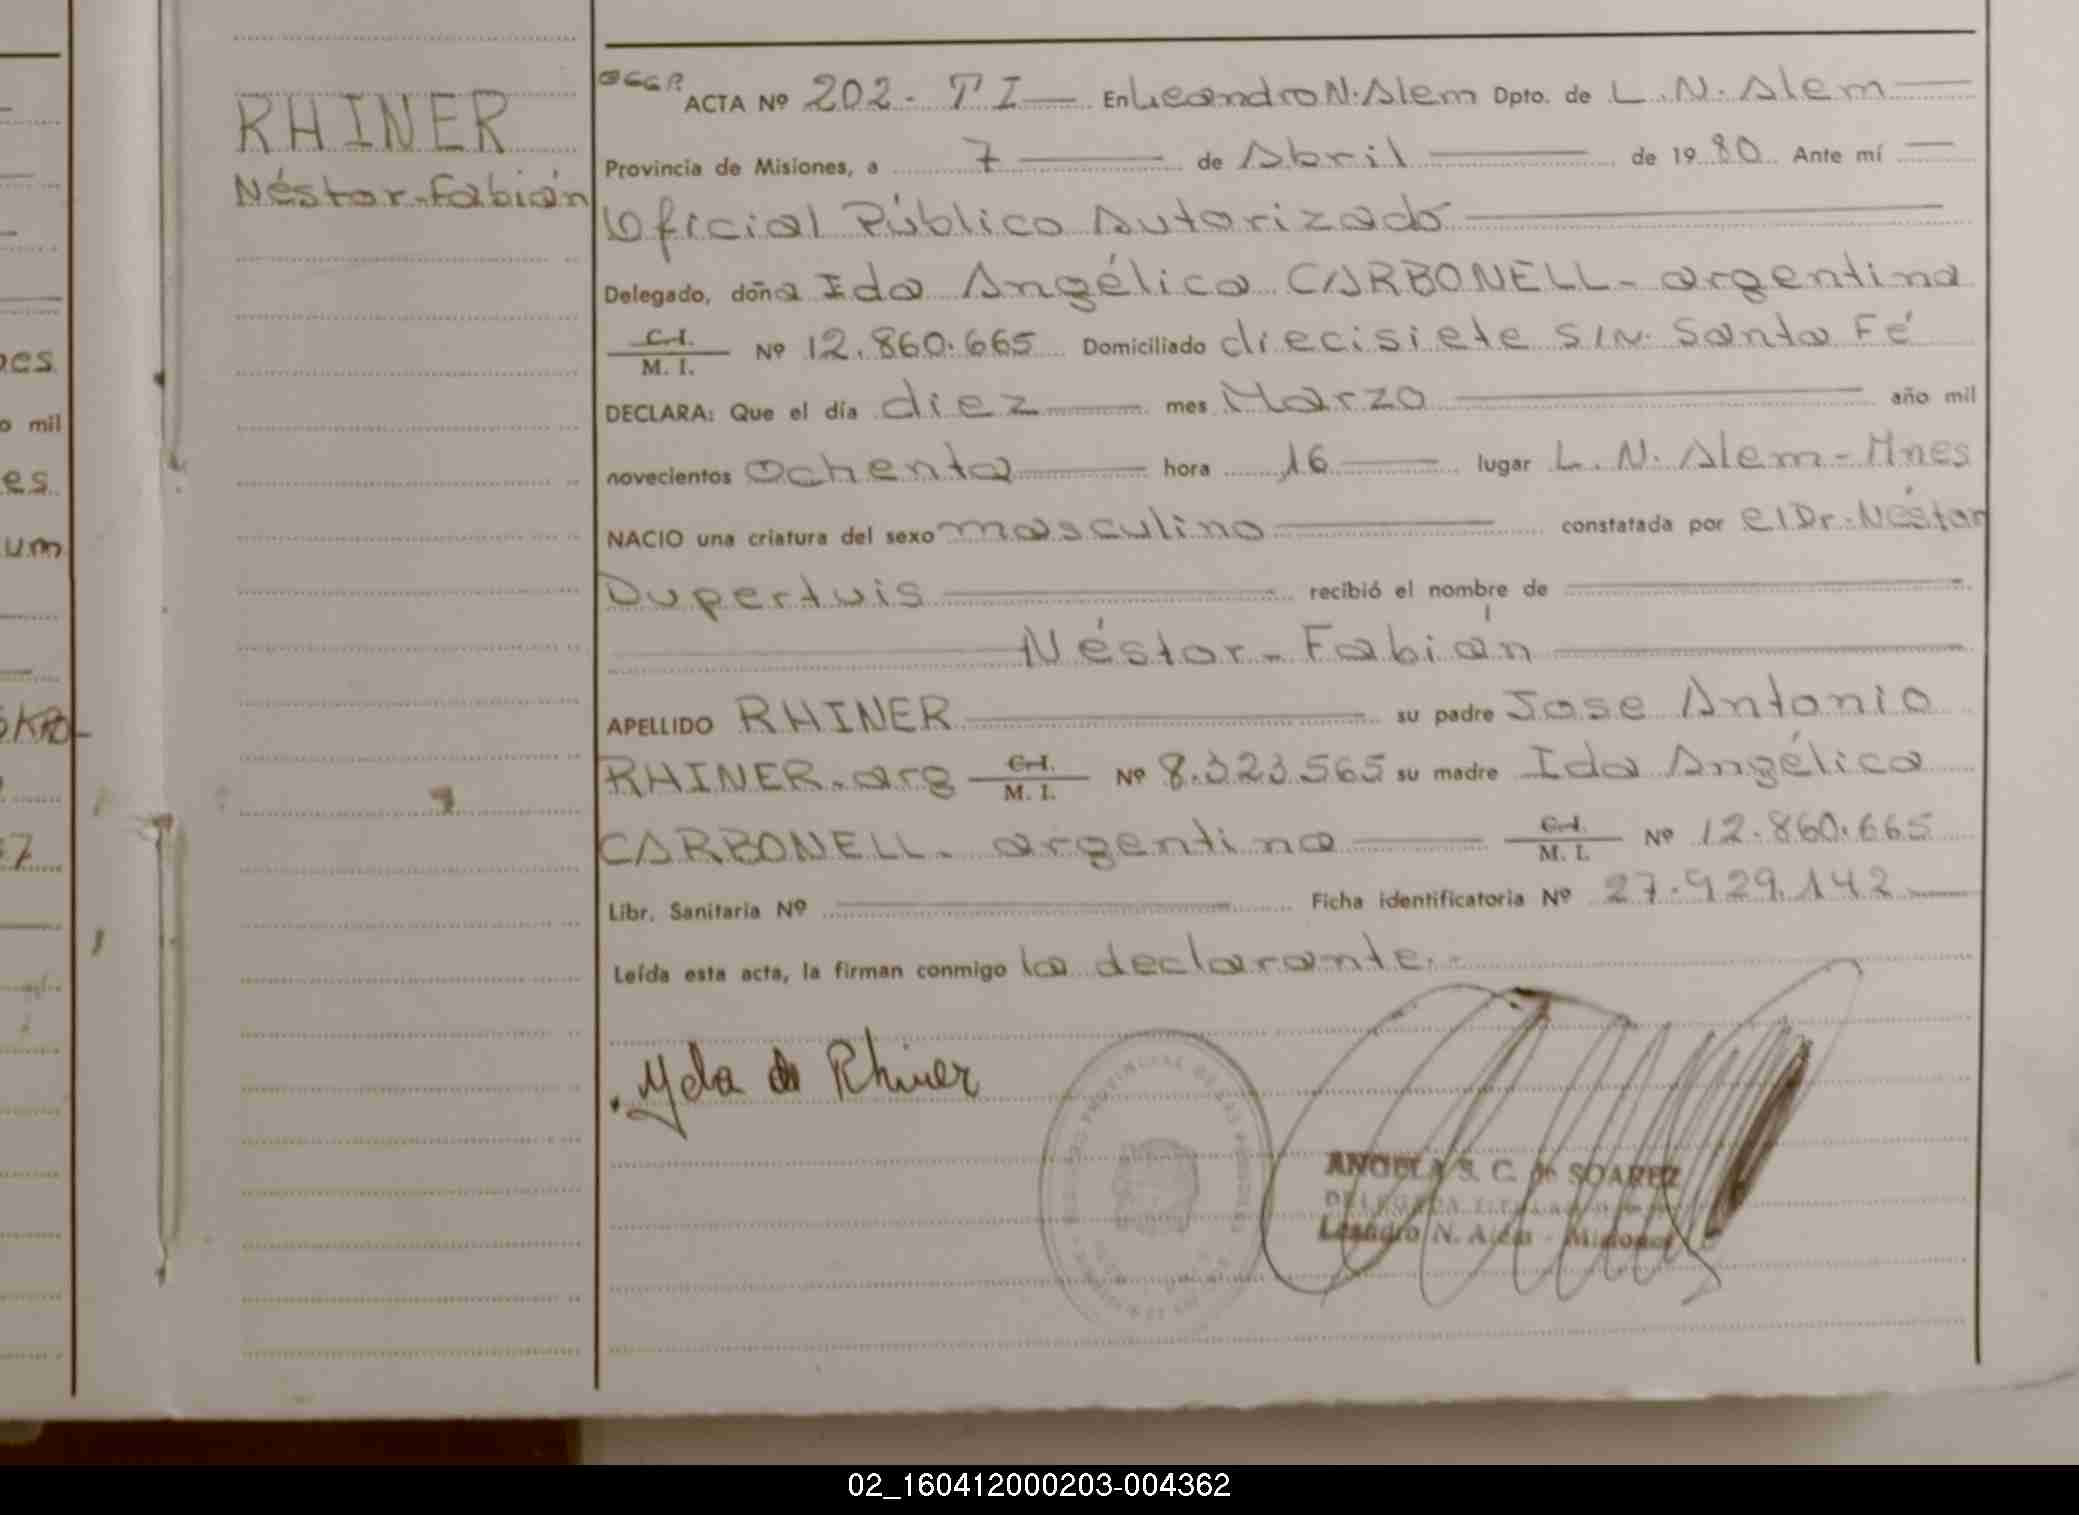 RHINER
Néstor-Fabián
ACTA Nº 202- TI En Leandro N. Alem Dpto. de L. N. Alem
Provincia de Misiones, a 7 de Abril de 1980 Ante mí
Oficial Público Autorizado
Delegado, doña Ida Angélica CARBONELL- argentina
C.I. M. I. Nº 12.860.665 Domiciliado diecisiete S/N. Santa Fé
DECLARA: Que el día diez mes Marzo año mil
novecientos ochenta hora 16 lugar L. N. Alem- Mnes
NACIO una criatura del sexo masculino constatada por el Dr. Néstor
Dupertuis recibió el nombre de
Néstor- Fabián
APELLIDO RHINER su padre Jose Antonio
RHINER- arg C.I. M. I. Nº 8.323.565 su madre Ida Angélica
CARBONELL- argentina C.I. M. I. Nº 12.860.665
Libr. Sanitaria Nº Ficha identificatoria Nº 27.929.142
Leída esta acta, la firman conmigo la declarante.-
Yda de Rhiner
ANGELA S. C. de SOAREZ
DELEGADA TITULAR
Leandro N. Alem - Misiones
es
o mil
es
um
7
02_160412000203-004362